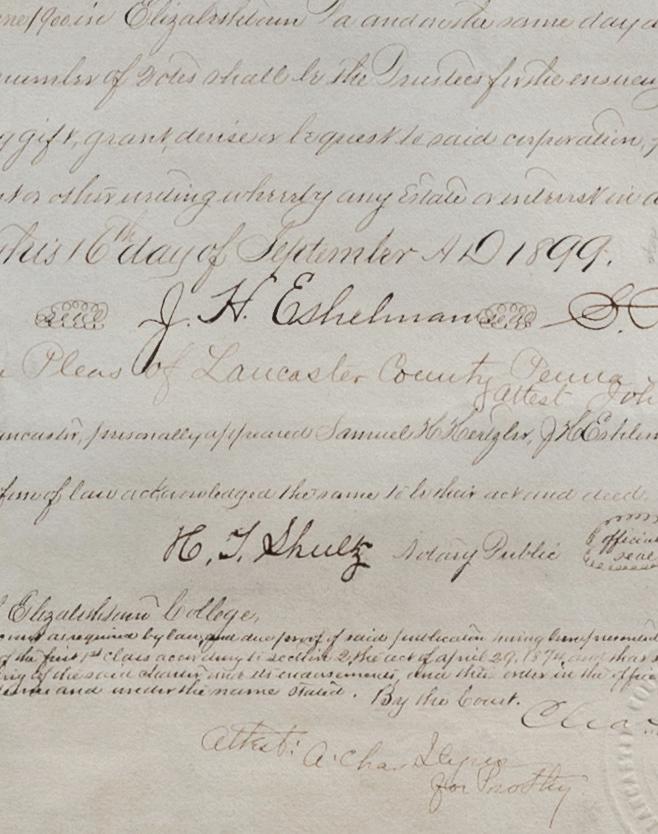 June 1900 in Elizabethtown Pa and on the same day
number of votes shall be the Trustees for the ensuing
gift, grant, devise or bequest to said corporation,
or other writing whereby any Estate or interest in
this 16th day of September A D 1899.
seal J. H. Eshelman seal S.
Pleas of Lancaster County Penna
attest Joh
ancaster, personally appeared Samuel H Hertzler, J H Eshlem
form of law acknowledged the same to be their act and deed.
H. T. Shultz Notary Public official seal
Elizabethtown College,
as required by law, and due proof of said publication having been presented
of the first 1st class according to section 2, the act of april 29, 1874, and that
of the said charter and its endorsements, and this order in the office
and under the name stated. By the Court.
Cha
attest: A. Char
for Prothy